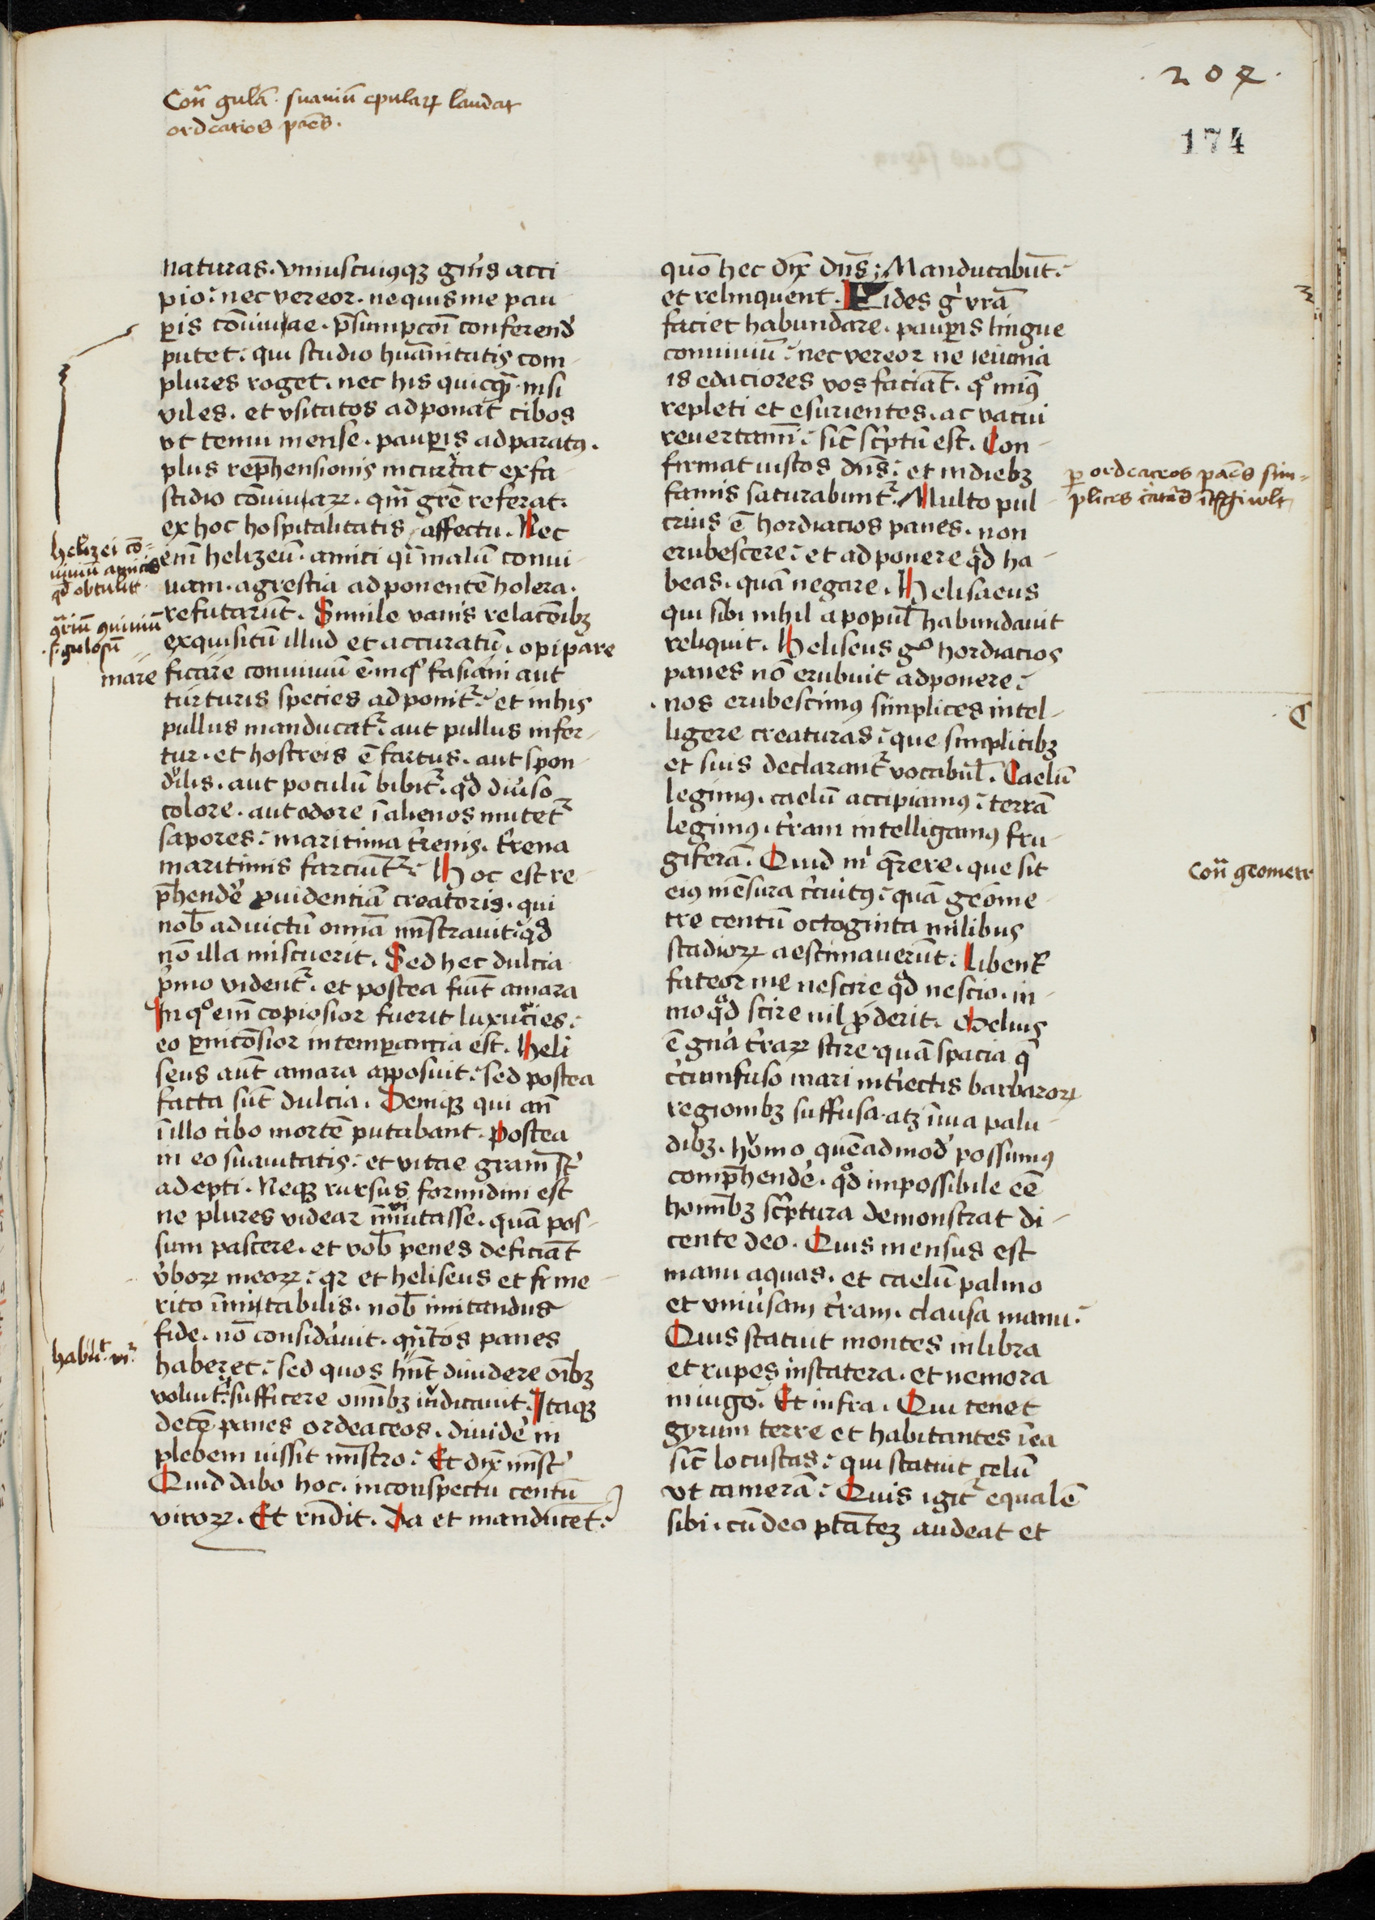 204
174
Con̄ gulā · suauiū epularꝝ laudat
ordeatios pāes.
naturas. vniuscuiusqꝫ gn̄is acci
pio: nec vereor. ne quis me pau
ꝑis cōuiuae. p̄sumpcōi conferend̓
putet. qui studio hūanitatis com-
plures roget. nec his quicqȝ nisi
viles. et vsitatos ad ponat cibos
vt tenui mense. pauꝑis ad paratꝰ.
plus rep̄hensionis incurrat ex fa-
stidio cōuiuiaꝝ. qm̄ grē referat.
ex hoc hospitalitatis affectu. Nec
helizei cō-
uiuiū amicis
qd̓ obtulit
enī helizeū. amici qī malū conui-
uam. agrestia ad ponentē holera.
refutarūt. Simile vanis relacōibꝫ
ꝯ̄riū ꝯuiuiū
.s. gulosū
exquisitū illud et accuratū. opipare
mare ficare conuiuiū ē. inqͦ fasiani aut
turturis species ad ponit᷑. et in his
pullus manducat᷑. aut pullus infer-
tur. et hostreis ē fartus. aut spon-
dilis. aut poculū bibit᷑. qd̓ diuso
colore. aut odore ī alienos mutet᷑
sapores: maritima t̓renis. t̓rena
maritimis farciūt᷑: Hoc est re-
p̄hend̓e ꝓuidentiā creatoris. qui
nob̄ ad victū omīa mīstrauit. qd̓
nō illa miscuerit. Sed hec dulcia
p̓mo vident᷑. et postea fiūt amara
In qͦ enī copiosior fuerit luxuries:
eo ꝑnicōsior intemꝑantia est. Heli
seus aūt amara apposuit: sed postea
facta sūt dulcia. Deniqꝫ qui an̄
ī illo cibo mortē putabant. postea
in eo suauitatis: et vitae gram sūt
ad epti. Neqꝫ rursus formidini est
ne plures videar inuitasse. quā pos-
sum pascere. et vob̄ penes deficiāt
v̓boꝝ meoꝝ: qꝛ et heliseus et si me
rito īmitabilis. nob̄ imitandus
fide. nō consid̓auit. quātos panes
habuīt. vi᷑.
haberet: sed quos hn̄t diuidere oībꝫ
voluit: sufficere omībꝫ iudicauit. Itaqꝫ
decē panes ordeaceos. diuid̓e in
plebem iussit mīstro: Et dix̄ mīst̓
Quid dabo hoc. in conspectu centū
viroꝝ. Et rn̄dit. Da et manducet:
quō hec dix̄ dn̄s: Manducabūt:
et relinquent. Fides g̓ vrā
faciet habundare. pauꝑis lingue
conuiuiū: nec vereor ne ieiunia
is edaciores vos faciāt. qͦ minꝰ
repleti et esurientes. ac vacui
reuertamī: sic̄ scp̄tū est. Con-
firmat iustos dn̄s: et in diebꝫ
famis saturabunt᷑. Multo pul-
ꝑ ordeaceos pāes sim-
plices
crius ē hordiacios panes. non
erubescere: et ad ponere qd̓ ha-
beas. quā negare. Helisaeus
qui sibi nihil a popul̄ habundauit
reliquit. Heliseus gͦ hordiacios
panes nō erubuit ad ponere:
nos erubescimꝰ simplices intel-
ligere creaturas: que simplicibꝫ
et suis declarant᷑ vocabul̄. Caelū
legimꝰ. caelū accipiamꝰ: terrā
legimꝰ. t̓ram intelligamꝰ fru-
giferā. Quid m̓ q̄rere. que sit
Con̄ geometr
eiꝰ mēsura c̓cuitꝰ: quā geome-
tre centū octoginta milibus
stadioꝝ aestimauerūt. Libent᷑
fateor me nescire qd̓ nescio. in-
mo qd̓ scire nil ꝓderit. Melius
ē gn̄a t̓raꝝ scire. quā spacia q̓
c̓cumfuso mari int̓iectis barbaroꝝ
regionibꝫ suffusa. atqꝫ īuia palu-
dibꝫ. homo quēadmod̓ possumꝰ
comp̄hend̓e. qd̓ impossibile eē
hominibꝫ scp̄tura demonstrat di-
cente deo. Quis mensus est
manu aquas. et caelū palmo
et vniu̓sam t̓ram. clausa manu:
Quis statuit montes in libra
et rupes in statera. et nemora
in iugo: Et infra. Qui tenet
gyrum terre et habitantes ī ea
sic̄ locustas: qui statuit celū
vt camerā: Quis igit᷑ equalē
sibi. cū deo ptātē audeat et